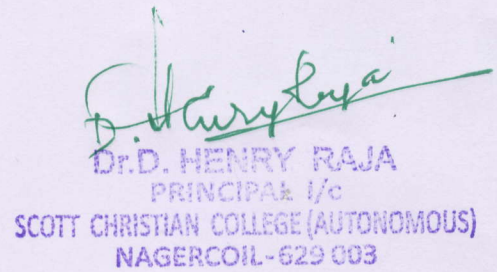 D. Henry Raja
Dr.D. HENRY RAJA
PRINCIPAL I/c
SCOTT CHRISTIAN COLLEGE (AUTONOMOUS)
NAGERCOIL-629 003